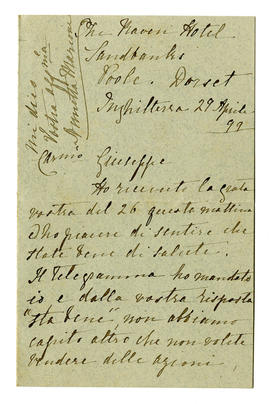 The Haven Hotel
Sandbanks
Poole. Dorset
Inghilterra 29 Aprile
99
Carmo Giuseppe
Ho ricevuto la grata
vostra del 26 questa mattina
e ho piacere di sentire che
state bene di salute.
Il telegramma ho mandato
io e dalla vostra risposta
"sta bene", non abbiamo
capito altro che non volete
vendere delle azioni,
mi dico
Vostra aff
Annetta Marconi